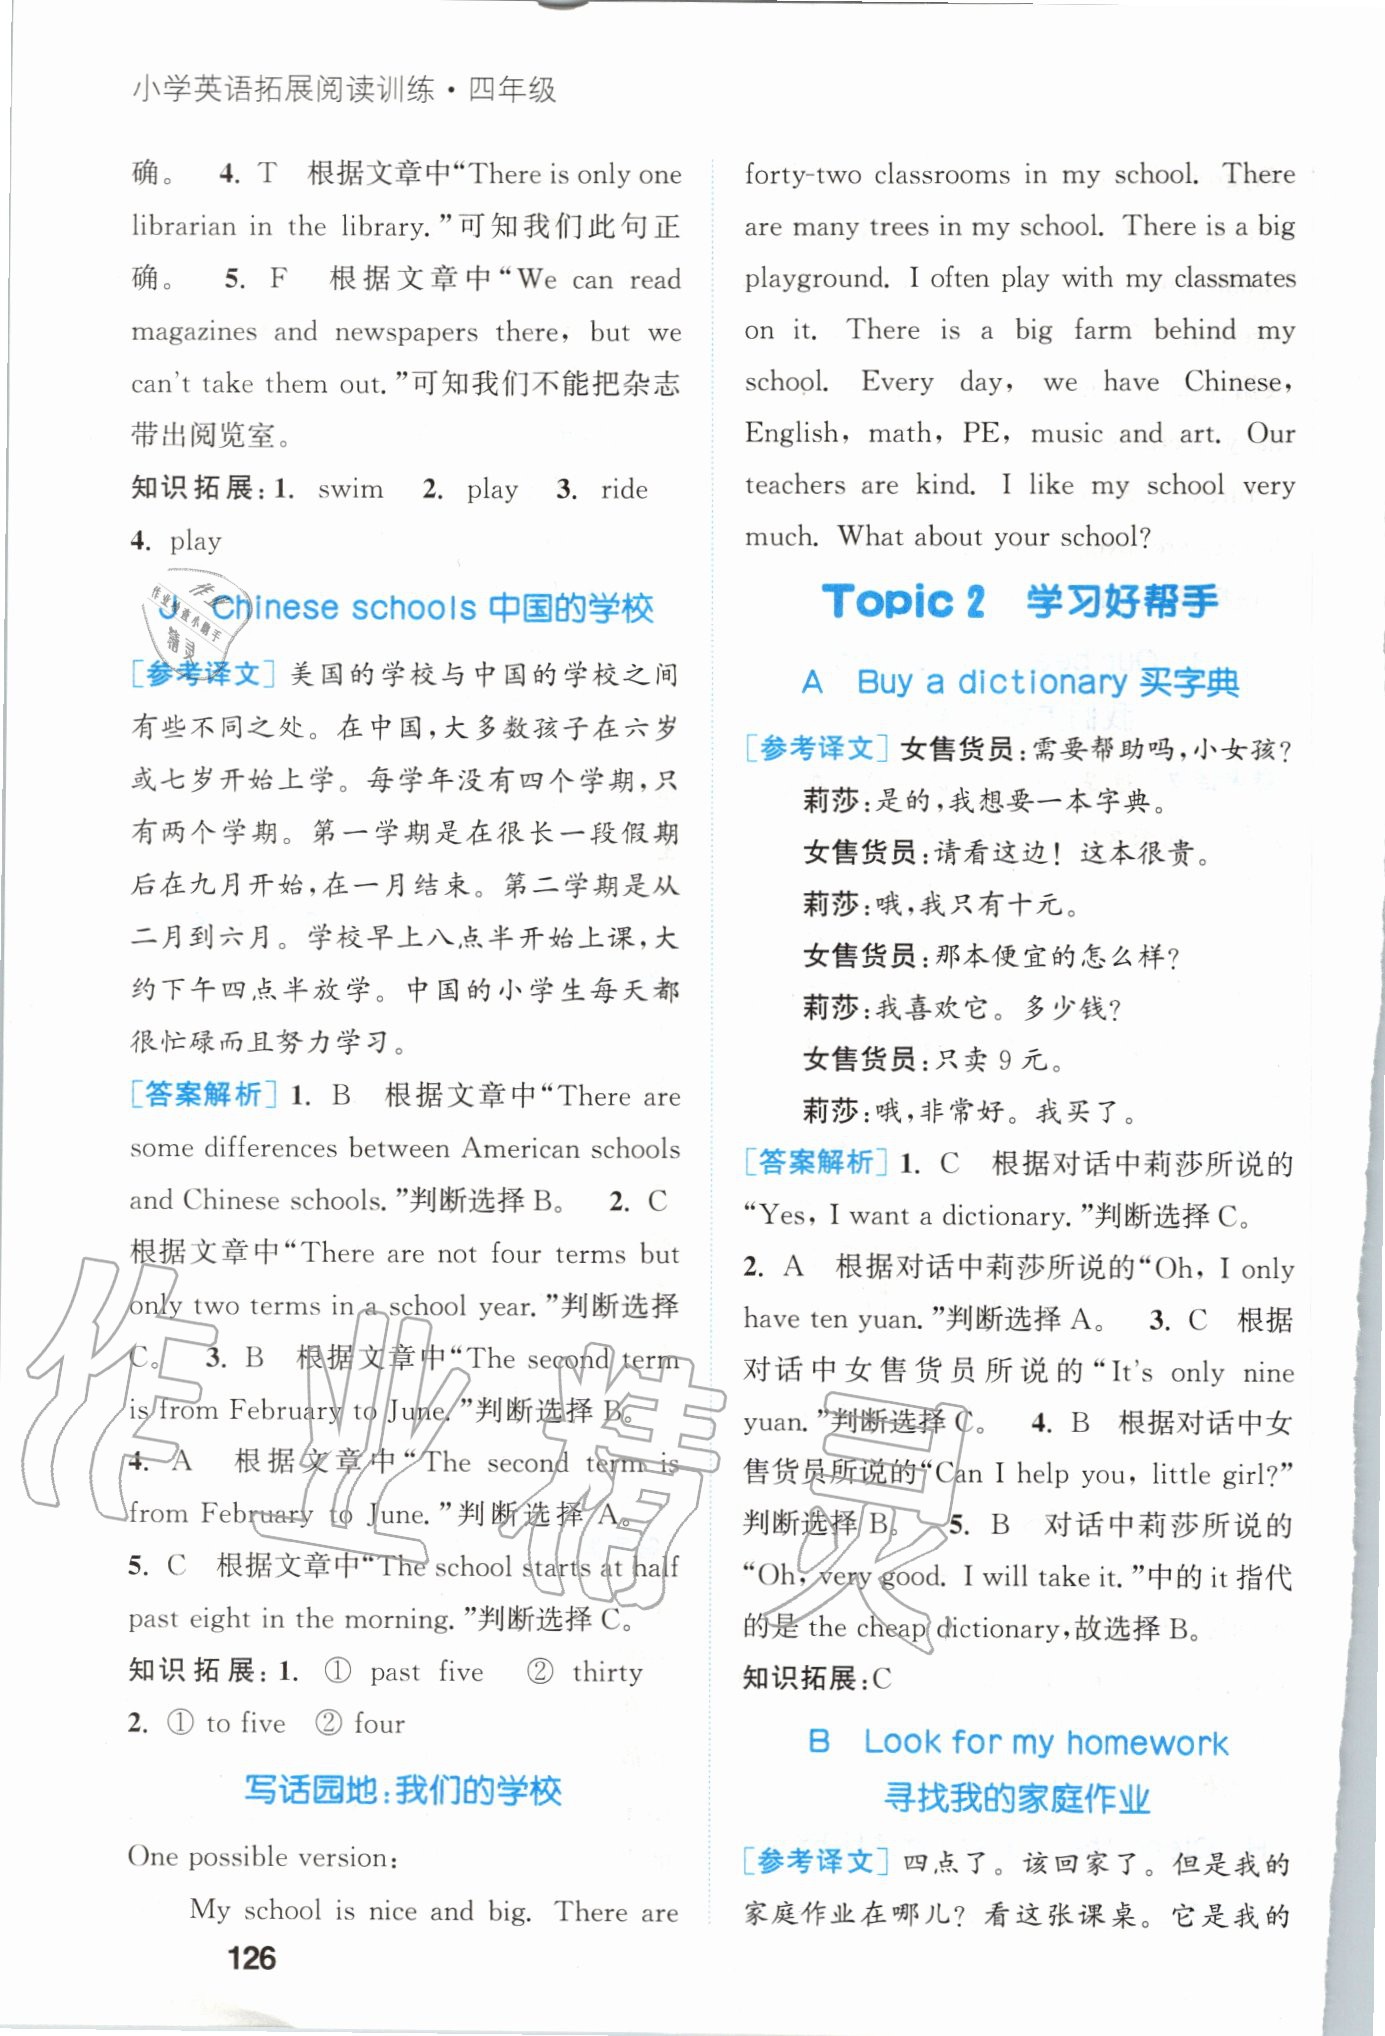 小学英语拓展阅读训练·四年级
确。 4. T 根据文章中“There is only one
librarian in the library.”可知我们此句正
确。 5. F 根据文章中“We can read
magazines and newspapers there, but we
can't take them out.”可知我们不能把杂志
带出阅览室。
知识拓展:1. swim 2. play 3. ride
4. play
J Chinese schools 中国的学校
[参考译文]美国的学校与中国的学校之间
有些不同之处。在中国,大多数孩子在六岁
或七岁开始上学。每学年没有四个学期,只
有两个学期。第一学期是在很长一段假期
后在九月开始,在一月结束。第二学期是从
二月到六月。学校早上八点半开始上课,大
约下午四点半放学。中国的小学生每天都
很忙碌而且努力学习。
[答案解析]1. B 根据文章中“There are
some differences between American schools
and Chinese schools.”判断选择B。 2. C
根据文章中“There are not four terms but
only two terms in a school year.”判断选择
C。 3. B 根据文章中“The second term
is from February to June.”判断选择B。
4. A 根据文章中“The second term is
from February to June.”判断选择 A。
5. C 根据文章中“The school starts at half
past eight in the morning.”判断选择C。
知识拓展:1. ① past five ② thirty
2. ① to five ② four
写话园地:我们的学校
One possible version:
My school is nice and big. There are
126
forty-two classrooms in my school. There
are many trees in my school. There is a big
playground. I often play with my classmates
on it. There is a big farm behind my
school. Every day, we have Chinese,
English, math, PE, music and art. Our
teachers are kind. I like my school very
much. What about your school?
Topic 2 学习好帮手
A Buy a dictionary 买字典
[参考译文]女售货员:需要帮助吗,小女孩?
莉莎:是的,我想要一本字典。
女售货员:请看这边!这本很贵。
莉莎:哦,我只有十元。
女售货员:那本便宜的怎么样?
莉莎:我喜欢它。多少钱?
女售货员:只卖 9 元。
莉莎:哦,非常好。我买了。
[答案解析]1. C 根据对话中莉莎所说的
“Yes, I want a dictionary.”判断选择C。
2. A 根据对话中莉莎所说的“Oh, I only
have ten yuan.”判断选择 A。 3. C 根据
对话中女售货员所说的“It's only nine
yuan.”判断选择 C。 4. B 根据对话中女
售货员所说的“Can I help you, little girl?”
判断选择 B。 5. B 对话中莉莎所说的
“Oh, very good. I will take it.”中的 it 指代
的是 the cheap dictionary,故选择 B。
知识拓展:C
B Look for my homework
寻找我的家庭作业
[参考译文]四点了。该回家了。但是我的
家庭作业在哪儿?看这张课桌。它是我的
作业精灵